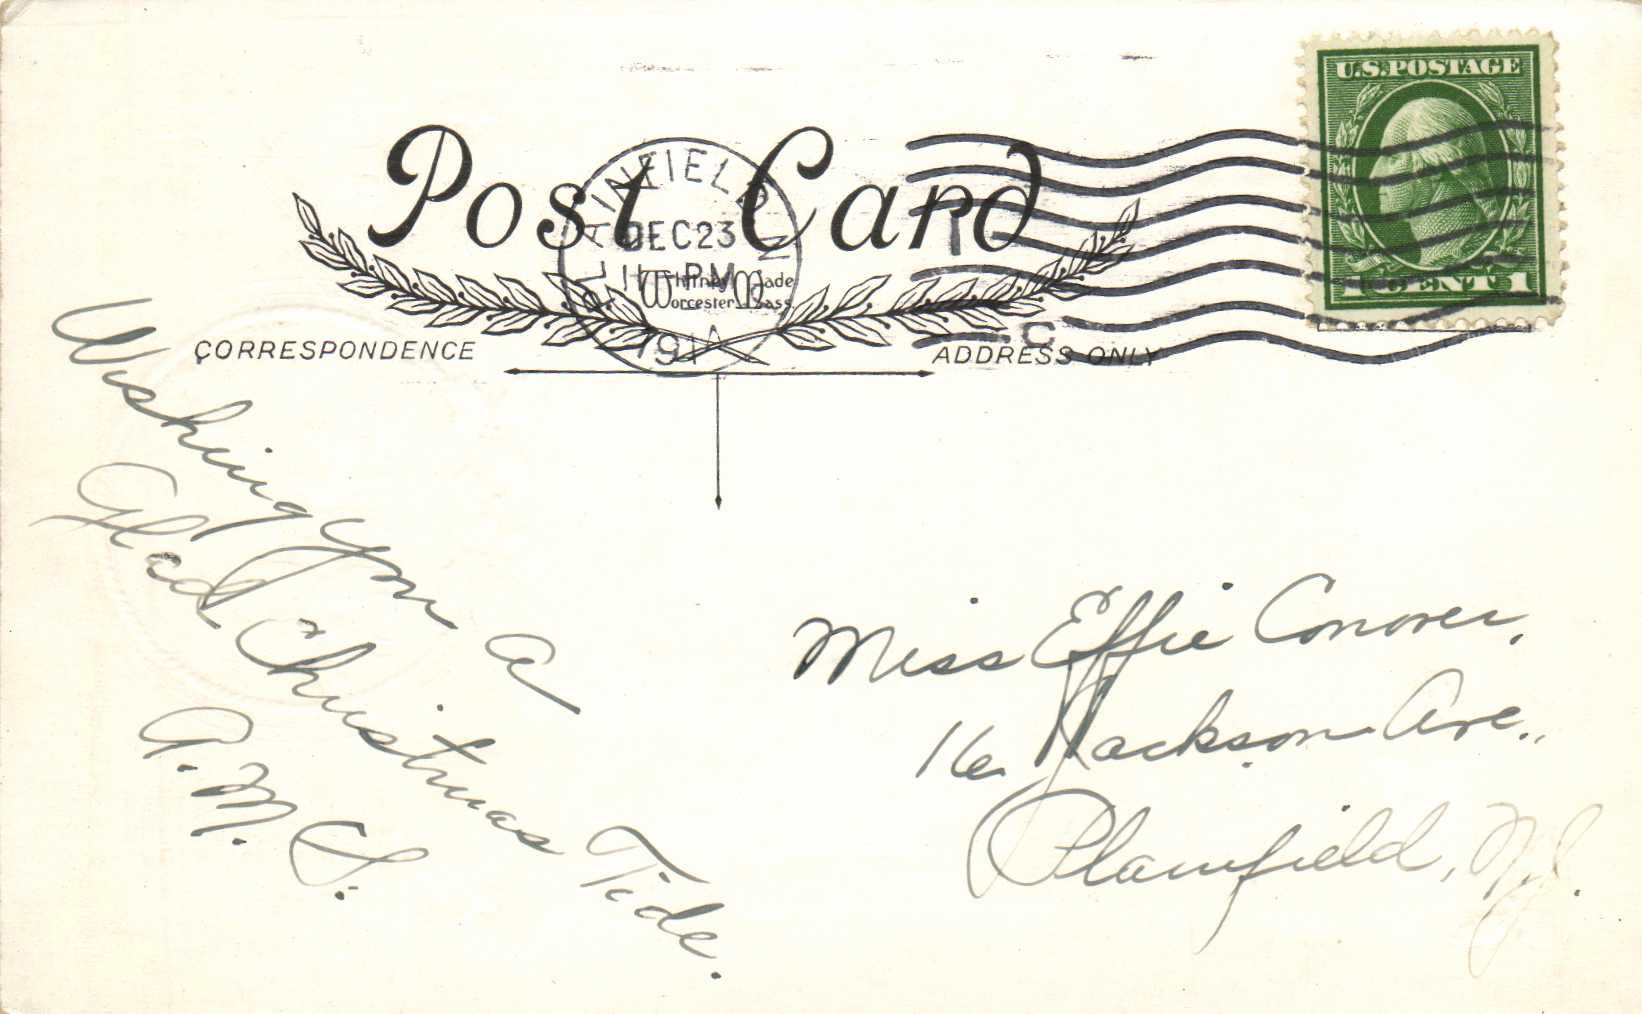 U.S. POSTAGE
1 CENT 1
Post Card
PLAINFIELD N
DEC 23
11 PM
191
Whitney Made
Worcester Mass
C
CORRESPONDENCE
ADDRESS ONLY
Wishing you a
Glad Christmas Tide.
A. M. S.
Miss Effie Conover,
16 Jackson Ave.,
Plainfield, N.J.